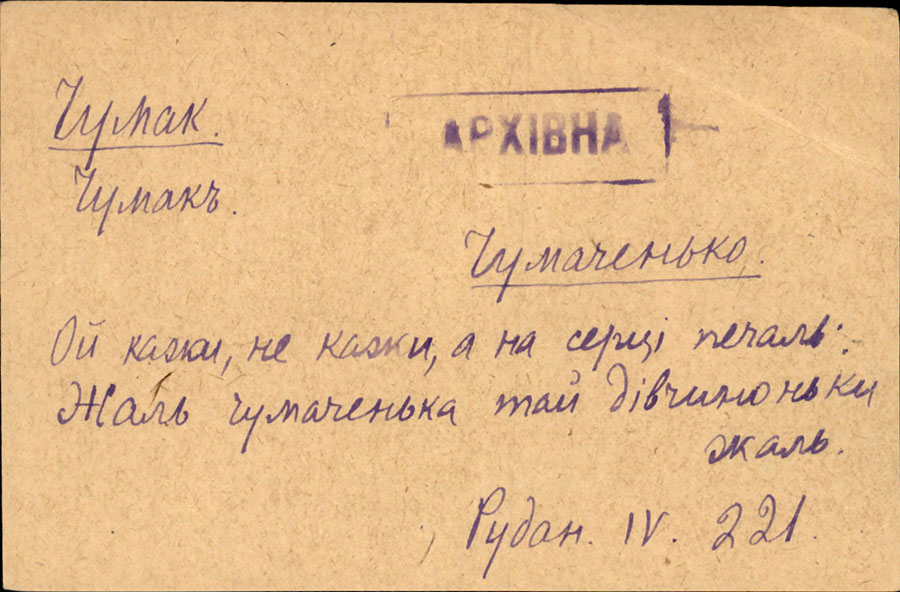 Чумак.
АРХІВНА
Чумакъ.
Чумаченько.
Ой кажи, не кажи, а на серці печаль:
Жаль чумаченька тай дівчиноньки
жаль.
Рудан. IV. 221.